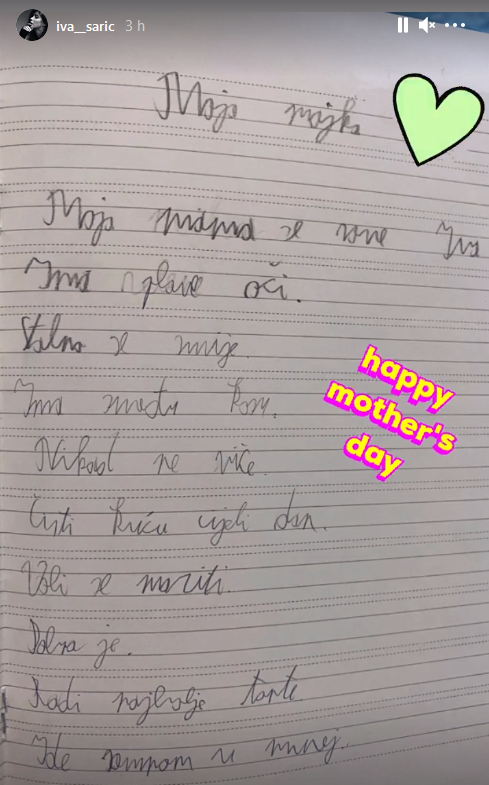 iva__saric 3 h
Moja majka
Moja mama se zove Iva
Ima plave oči.
Stalno se smije.
Ima smeđu kosu.
happy
mother's
day
Nikad ne viče.
Čisti kuću cijeli dan.
Voli se maziti.
Dobra je.
Radi najbolje torte
Ide samnom u muzej.